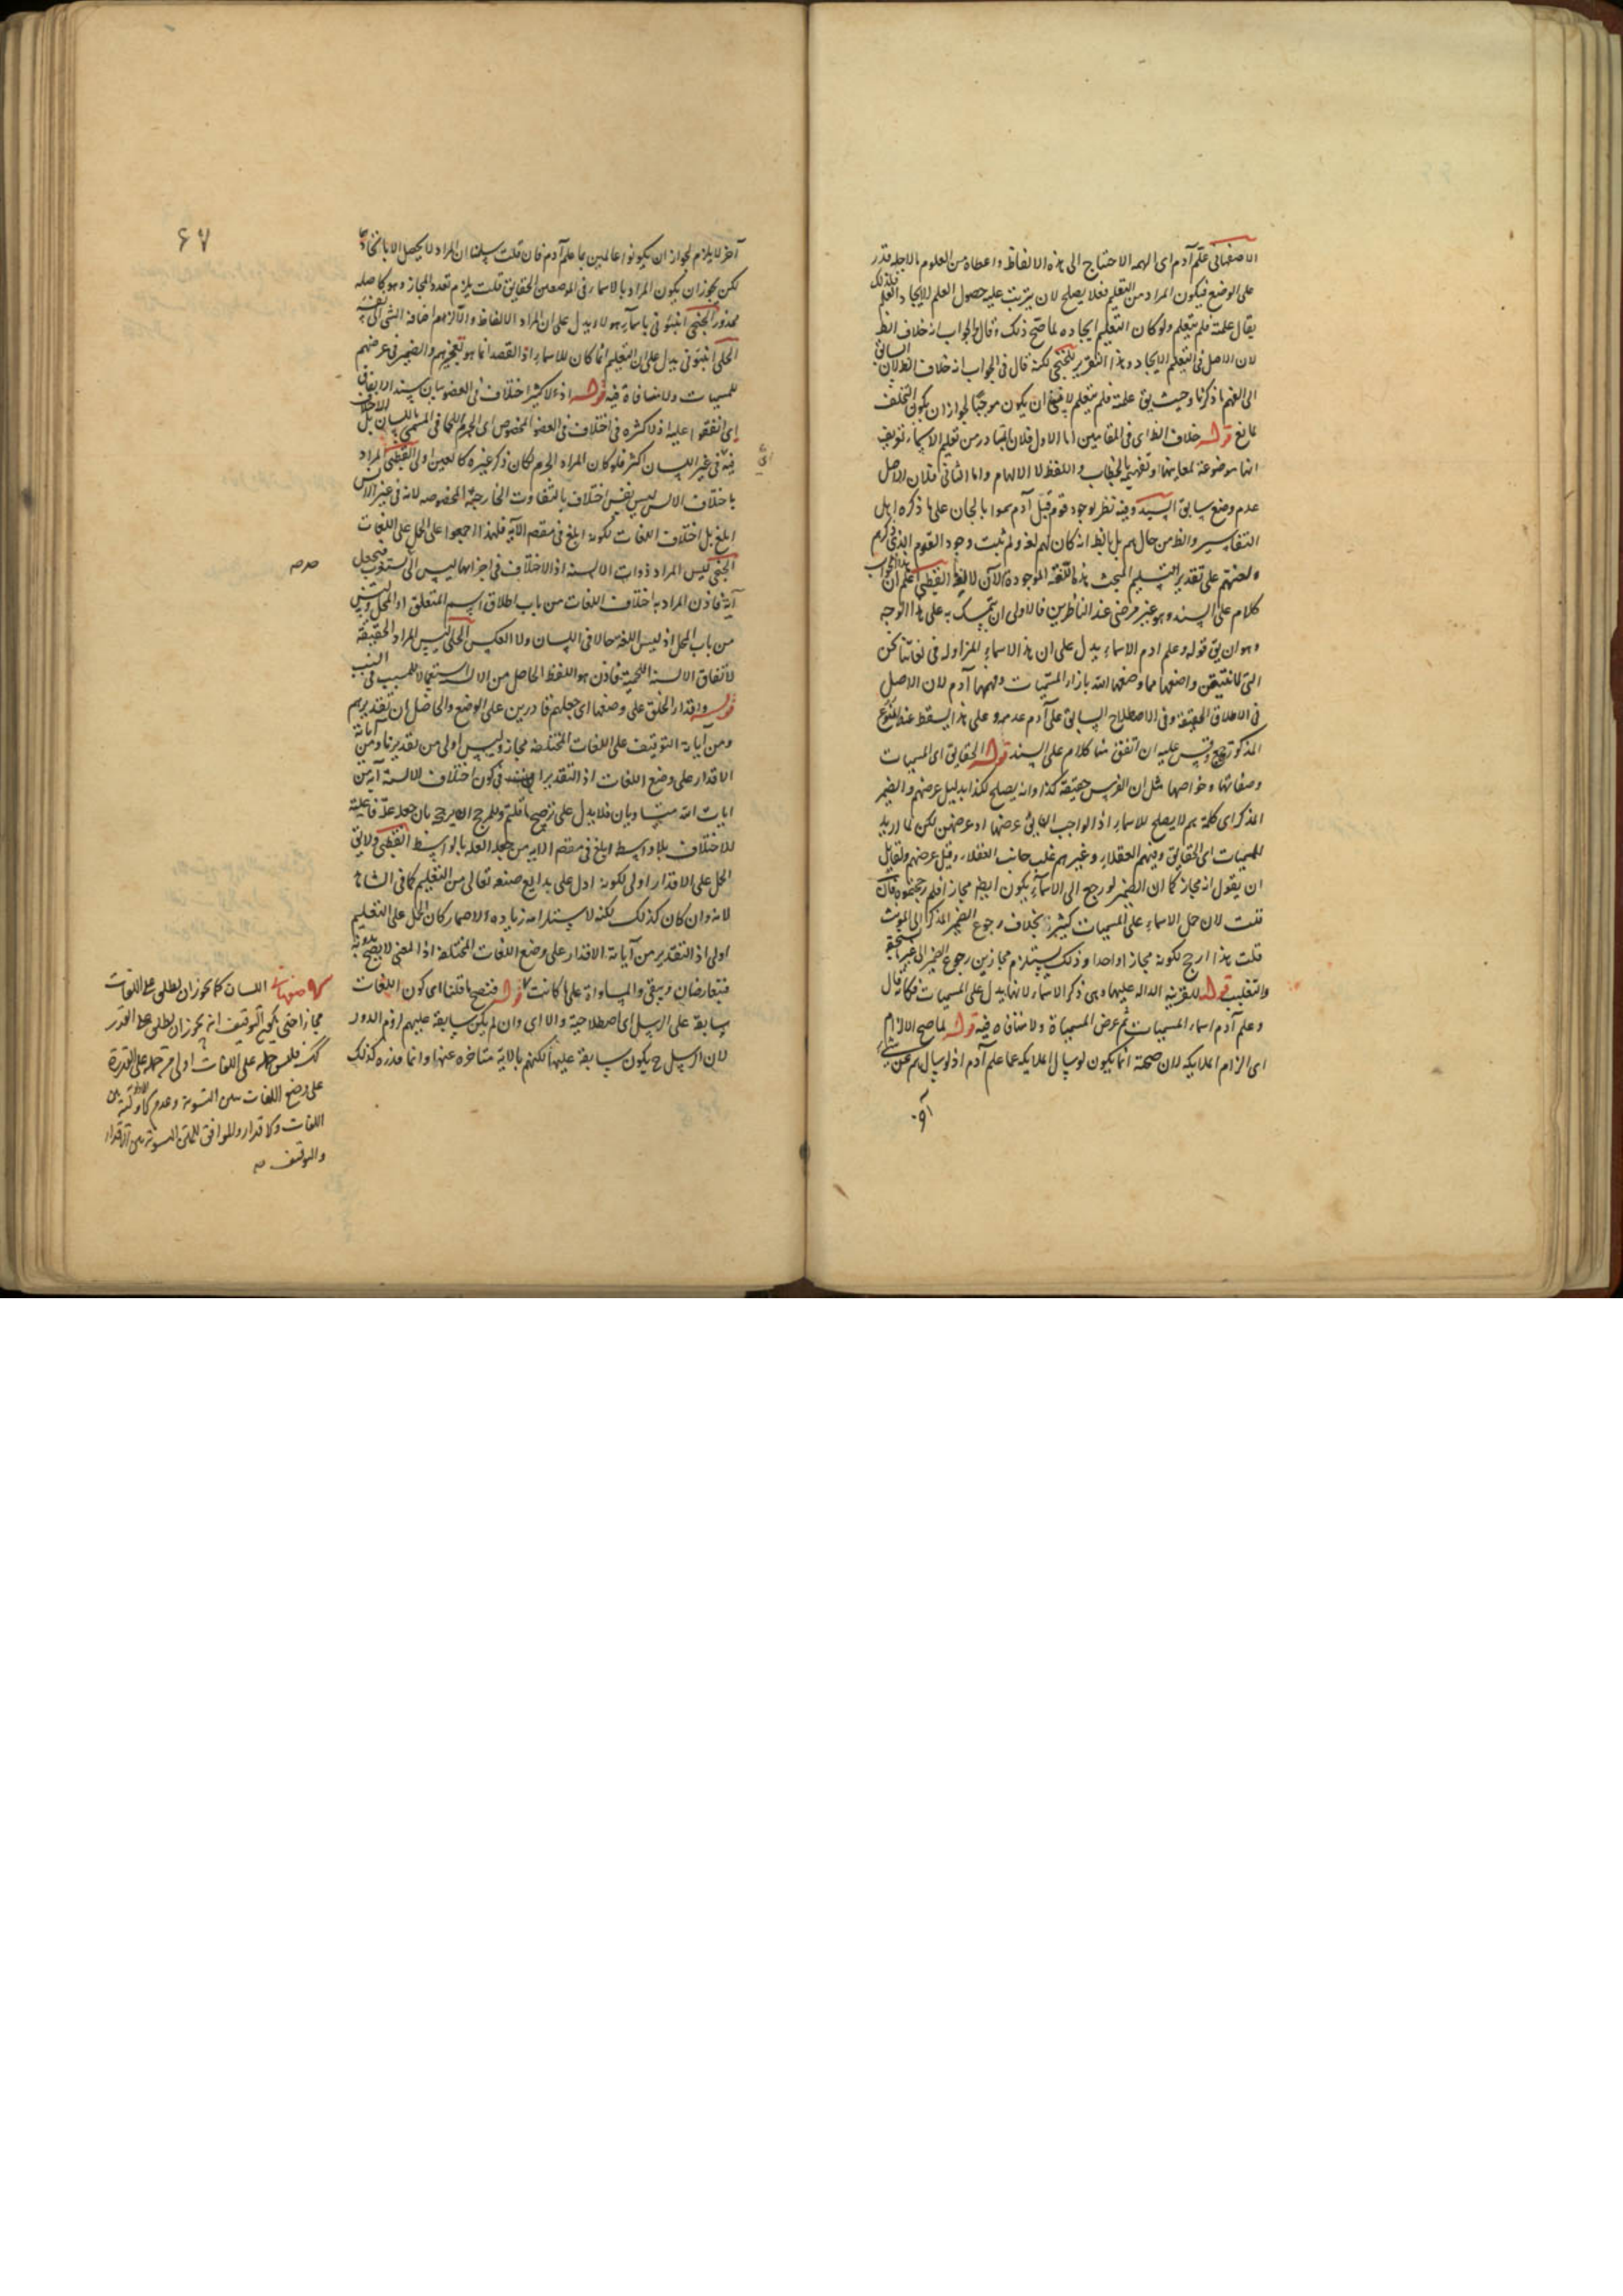 الاصفهانى علّم آدم اى الهمه الاحتياج الى هذه الالفاظ واعطاه من العلوم ما لاجله قدر
على الوضع فيكون المراد من التعليم فعلا يصلح لان يترتب عليه حصول العلم لا ايجاد العلم فلذلك
يقال علمته فلم يتعلم ولو كان التعليم ايجاده لما صح ذلك وقال والجواب انه خلاف الظ
لان الاصل فى التعلم الايجاد وهذا التقرير للخنجى لكنه قال فى الجواب انه خلاف الظ لان السابق
الى الفهم ما ذكرنا وحيث يق علمته فلم يتعلم لا ينبغى ان يكون موجبا لجواز ان يكون التخلف
لمانع قوله خلاف الظ اى فى المقامين اما الاول فلان المتبادر من تعليم الاسماء تعريف
انها موضوعة لمعانيها وتفهيمه بالخطاب واللفظ لا الالهام واما الثانى فلان الاصل
عدم وضع سابق السيد وفيه نظر لوجود قوم قبل آدم سموا بالجان على ما ذكره اهل
التفاسير والظ من حالهم بل بالظ انه كان لهم لغة ولم ثبت وجود القوم الذى ذكرهم
ولغتهم على تقدير التسليم المبحث هذه اللغة الموجودة الآن لا لغة القطبى اعلم ان هذا الجواب
كلام على السند وهو غير مرضى عند الناظرين فالاولى ان يتمسك به على هذا الوجه
وهو ان يق قوله وعلم ادم الاسماء يدل على ان هذه الاسماء المتزاولة فى لغاتنا نحن
التى لا نتيقن واضعها مما وضعها الله بازاء المسميات وفهمها آدم لان الاصل
فى الاطلاق الحقيقة وفى الاصطلاح السابق على آدم عدمه وعلى هذا يسقط عنه المنوع
المذكورة وقس عليه ان اتفق منا كلام على السند قوله الحقايق اى المسميات
وصفاتها وخواصها مثل ان الفرس حقيقة كذا وانه يصلح لكذا بدليل عرضهم والضمير
المذكر اى كلمة هم لا يصلح للاسماء اذ الواجب ان يق عرضها او عرضهن لكن لما اريد
المسميات اى الحقايق وفيهم العقلاء وغيرهم غلب جانب العقلاء وقيل عرضهم ولقايل
ان يقول انه مجاز كما ان الضمير لو رجع الى الاسماء يكون ايضا مجازا فلم رجحتموه فان
قلت لان حمل الاسماء على المسميات كثير بخلاف رجوع الضمير المذكر الى المونث
قلت هذا ارجح لكونه مجازا واحدا وذلك يستلزم مجازين رجوع الضمير الى غير ما يستحقه
والتغليب قوله للقرينة الدالة عليها وهى ذكر الاسماء لانها يدل على المسميات فكانه قال
وعلم آدم اسماء المسميات ثم عرض المسميات ولا منافاه فيه قوله لما صح الالزام
اى الزام الملايكة لان صحته انما يكون لو سال الملايكة عما علم آدم اذ لو سالهم عن شىء
آخر
٦٧
آخر لا يلزم لجواز ان يكونوا عالمين بما علم آدم فان قلت سلمنا ان المراد لا يحصل الا باتحادهما
لكن يجوز ان يكون المراد بالاسماء فى الموضعين الحقايق قلت يلزم تعدد المجاز وهو كاصله
محذور الخنجى انبئونى باسماء هولاء يدل على ان المراد الالفاظ والا لزم اضافة الشى الى نفسه
الحلى انبئونى يدل على ان التعليم انما كان للاسماء اذ القصد انما هو تعجيزهم والضمير فى عرضهم
للمسميات ولا منافاة فيه قوله اذ لا كثير اختلاف فى العضو بيان سند الاتفاق
اى اتفقوا عليه اذ لا كثرة فى اختلاف فى العضو المخصوص اى الجرم اللحمانى المسمى باللسان بل الاختلاف
فيه فى غير اللسان اكثر فلو كان المراد الجرم لكان ذكر غيره كالعين اولى القطبى المراد
باختلاف الالسن ليس نفس اختلاف بالتفاوت الخارجية المخصوصة لانه فى غير الالسن
ابلغ بل اختلاف اللغات لكونه ابلغ فى مقصد الآية فلهذا اجمعوا على الحمل على اللغات
الخنجى ليس المراد ذوات الالسنه اذ الاختلاف فى اجزائها ليس الى مستغرب فيجعل
آية فاذن المراد به اختلاف اللغات من باب اطلاق اسم المتعلق او المحل وليس
من باب المحل اذ ليس اللغة حالا فى اللسان ولا العكس الحلى ليس المراد الحقيقة
لاتفاق الالسنة اللحمية فاذن هو اللفظ الحاصل من الالسنة استعمالا للسبب فى المسبب
قوله واقدار الخلق على وضعها اى جعلهم قادرين على الوضع والحاصل ان تقديرهم
ومن آياته التوقيف على اللغات المختلفة مجاز وليس اولى من تقديرنا ومن آياته
الاقدار على وضع اللغات اذ التقديران فى كون اختلاف الالسنة آية من
ايات الله متساويان فلا يدل على ترجيح ما قلتم
للاختلاف بلا واسط ابلغ فى مقصد الاية من جعله العلة بالواسط القطبى ولا يق
الحمل على الاقدار اولى لكونه ادل على بدايع صنعه تعالى من التعليم كما فى الشاهد
لانه وان كان كذلك لكنه لاستلزامه زياده الاضمار كان الحمل على التعليم
اولى اذ التقدير من آياته الاقدار على وضع اللغات المختلفة اذ المعنى لا يصح بدونه
فتعارضان ويبقى والمساواة على ما كانت قوله فتصح ما قلنا اى كون اللغات
سابقة على الرسل اى اصطلاحية والا اى وان لم يكن سابقة عليهم لزم الدور
لان الرسل ح يكون سابقة عليها لكنهم بالاية متاخره عنها وانما قدره كذلك
اللسان كما يجوز ان يطلق على اللغات
مجازا حتى يصح التوقيف انه يجوز ان يطلق على القدرة
فليس حمله على اللغات اولى من حمله على القدرة
على وضع اللغات
اللغات والاقدار
والتوقيف